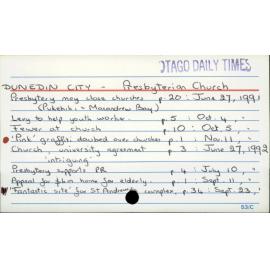 OTAGO DAILY TIMES
DUNEDIN CITY - Presbyterian Church
Presbytery may close churches p.20 : June 27, 1991
(Pukehiki - Macandrew Bay)
Levy to help youth worker. p.5 : Oct. 4, "
Fewer at church p.10 : Oct. 5, "
'Pink' graffiti daubed over churches p 1 : Nov. 11, "
Church, university agreement p 3 : June 27, 1992
'intriguing'
Presbytery supports PR p 4 : July 10, "
Appeal for $6m home for elderly p 1 : Sept. 11, "
'Fantastic site' for St Andrew's complex, p.34 : Sept. 23, "
53/C